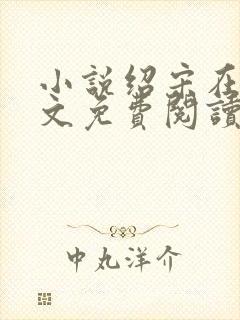 小說紹宋在
文免費閱讀
中丸洋介